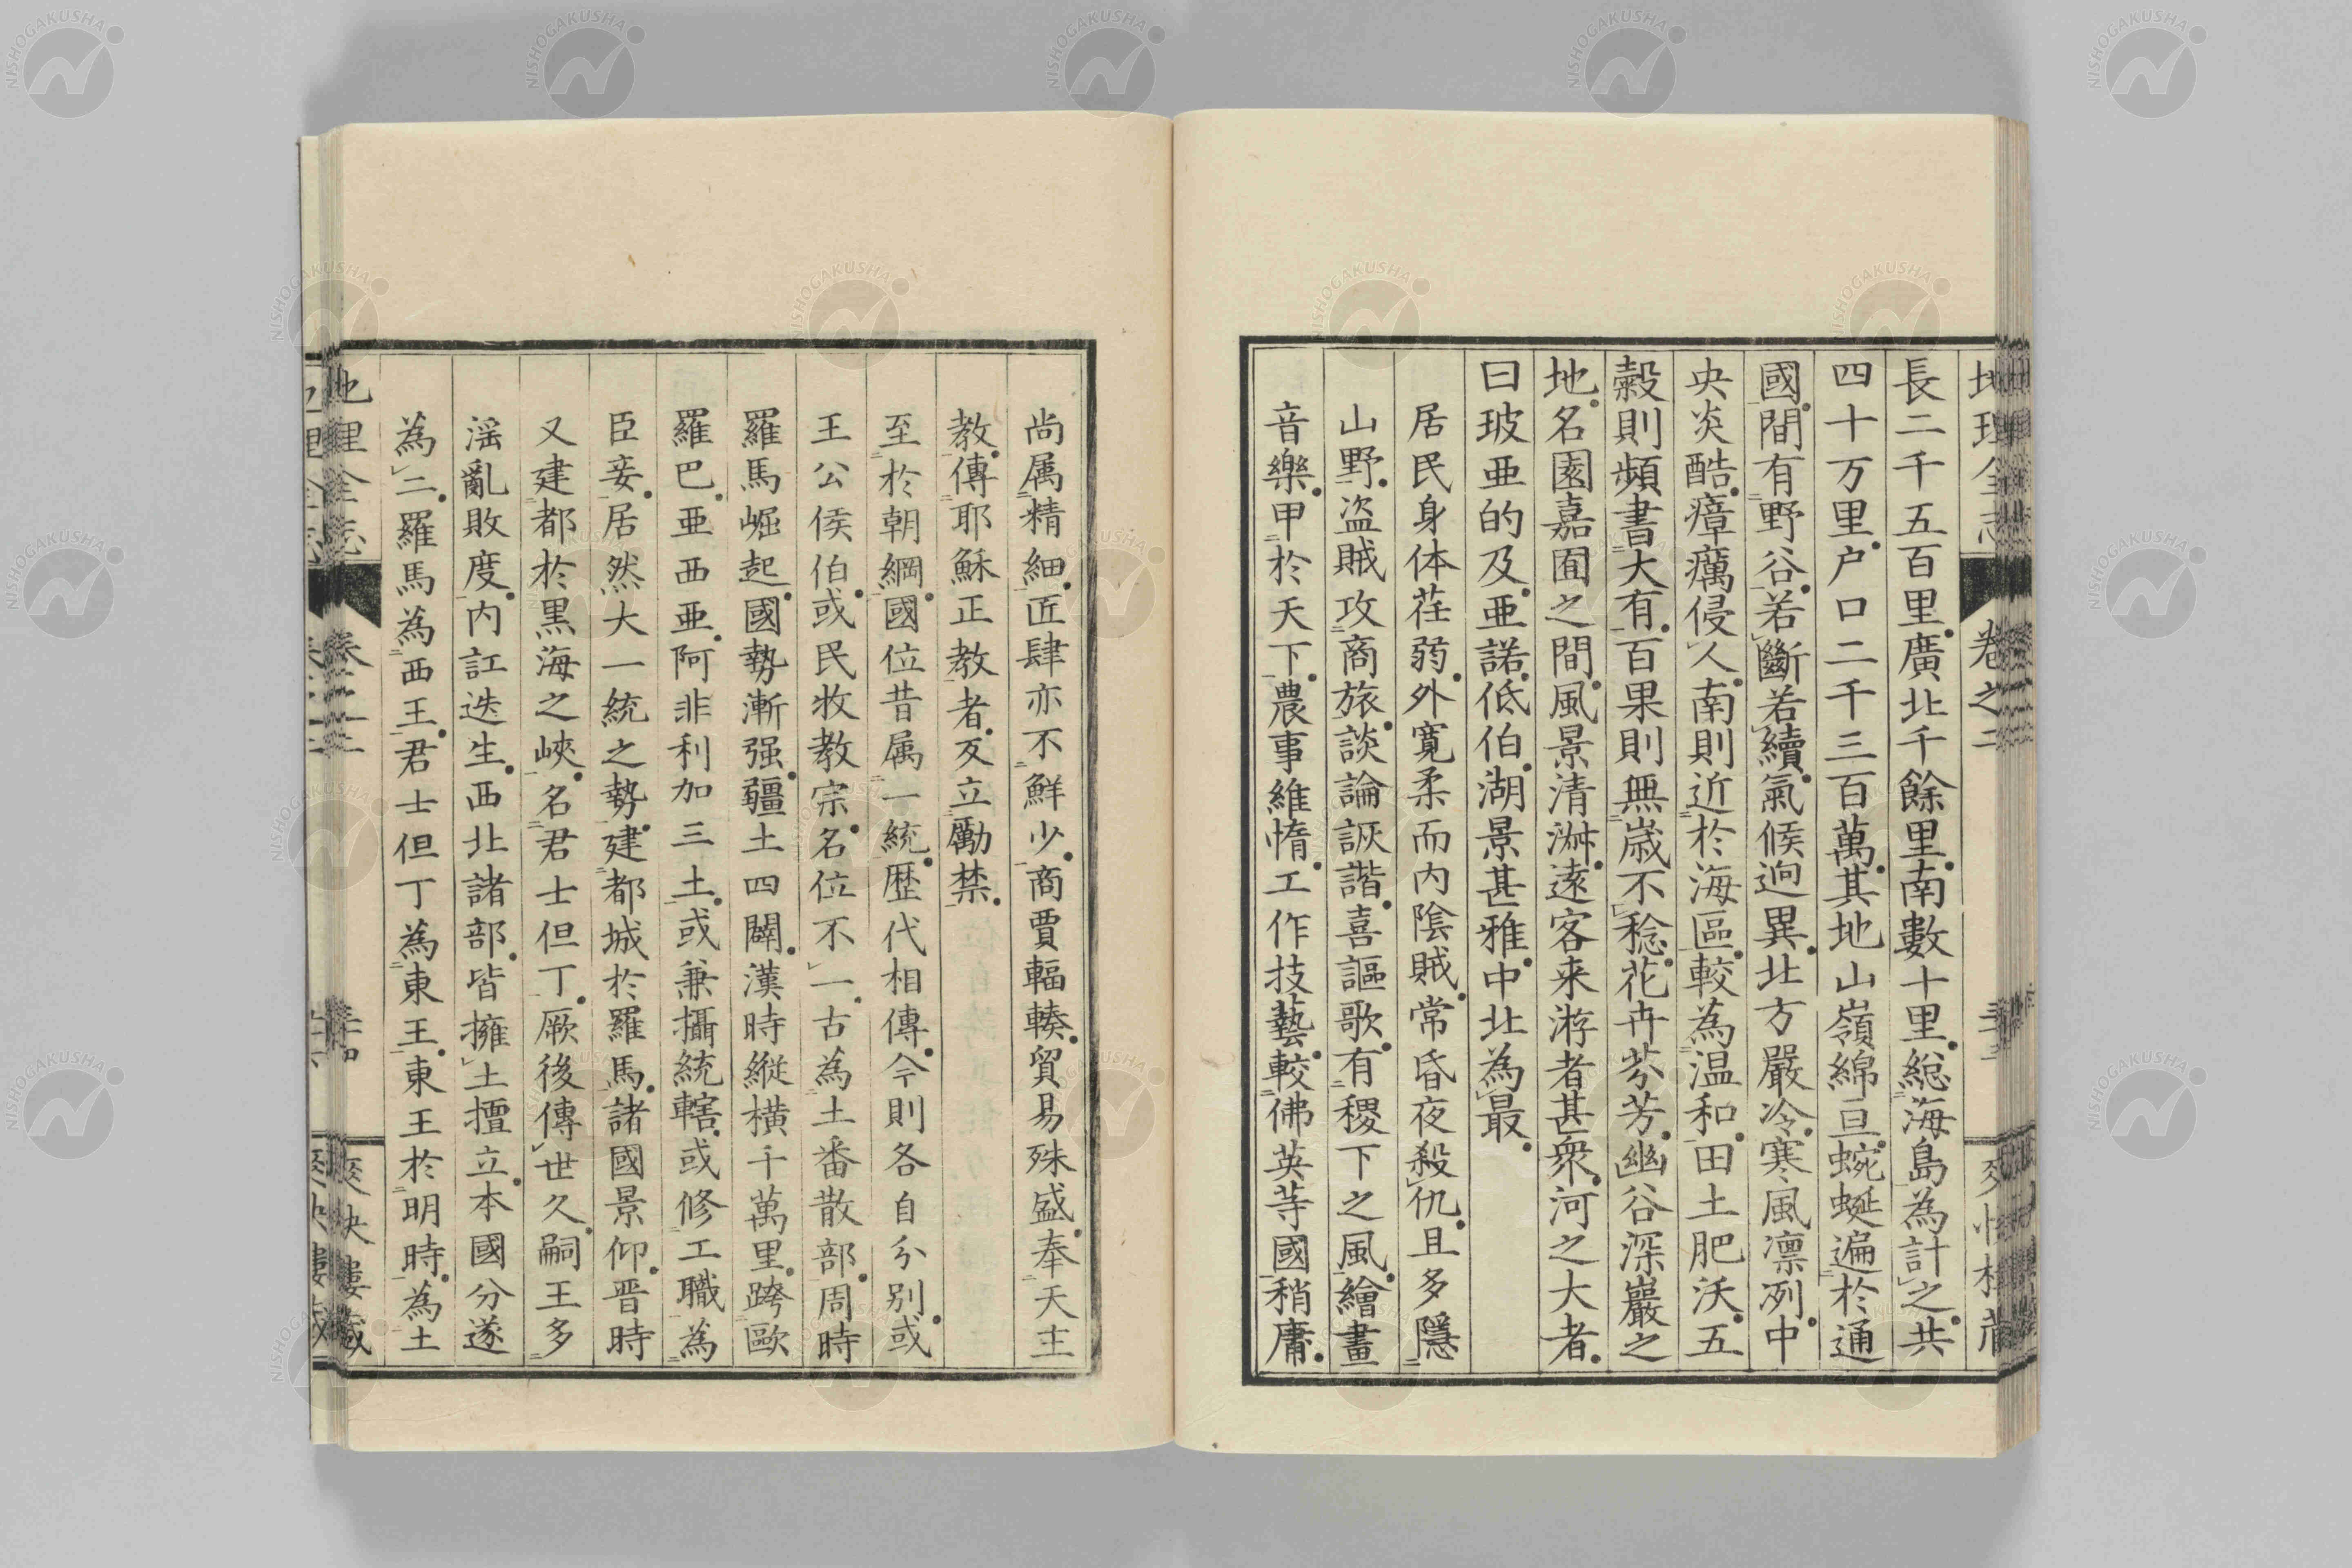 長二千五百里廣北千餘里南數十里総海島為計之共
四十万里户口二千三百萬其地山嶺綿亘蜿蜒遍於通
國間有野谷若斷若續氣候迥異北方嚴冷寒風凛冽中
央炎酷瘴癘侵人南則近於海區較為温和田土肥沃五
穀則頻書大有百果則無歳不稔花卉芬芳幽谷深巖之
地名園嘉囿之間風景清淵遠客来游者甚衆河之大者
曰玻亜的及亜諾低伯湖景甚雅中北為最
居民身体荏弱外寛柔而内陰賊常昏夜殺仇且多隱
山野盗賊攻商旅談論詼諧喜謳歌有稷下之風繪畫
音樂甲於天下農事維惰工作技藝較佛英等國稍庸
尚属精細匠肆亦不鮮少商賈輻輳貿易殊盛奉天主
教傳耶穌正教者反立勵禁
至於朝綱國位昔属一統歴代相傳今則各自分别或
王公侯伯或民牧教宗名位不一古為土番散部周時
羅馬崛起國勢漸强疆土四闢漢時縱横千萬里跨歐
羅巴亜西亜阿非利加三土或兼攝統轄或修工職為
臣妾居然大一統之勢建都城於羅馬諸國景仰晋時
又建都於黒海之峽名君士但丁厥後傳世久嗣王多
淫亂敗度内訌迭生西北諸部皆擁土擅立本國分遂
為二羅馬為西王君士但丁為東王東王於明時為土
地理全志
卷之二
NISHOGAKUSHA